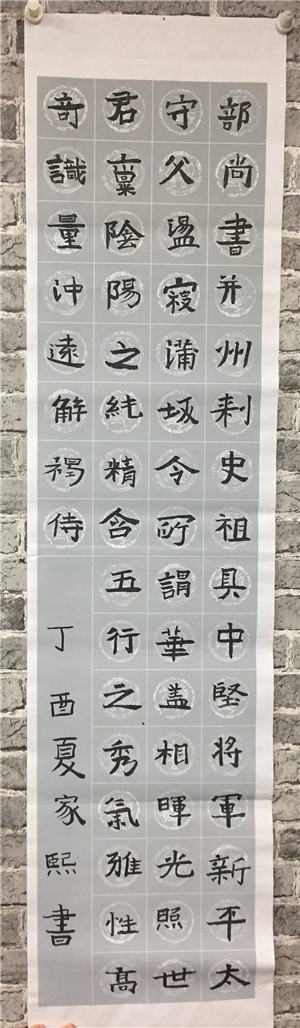 部尚書并州刺史祖具中堅將軍新平太
守父溫寢蒲坂令所謂華蓋相暉光照世
君稟陰陽之純精含五行之秀氣雅性高
奇識量沖遠解褐侍
丁酉夏家熙書